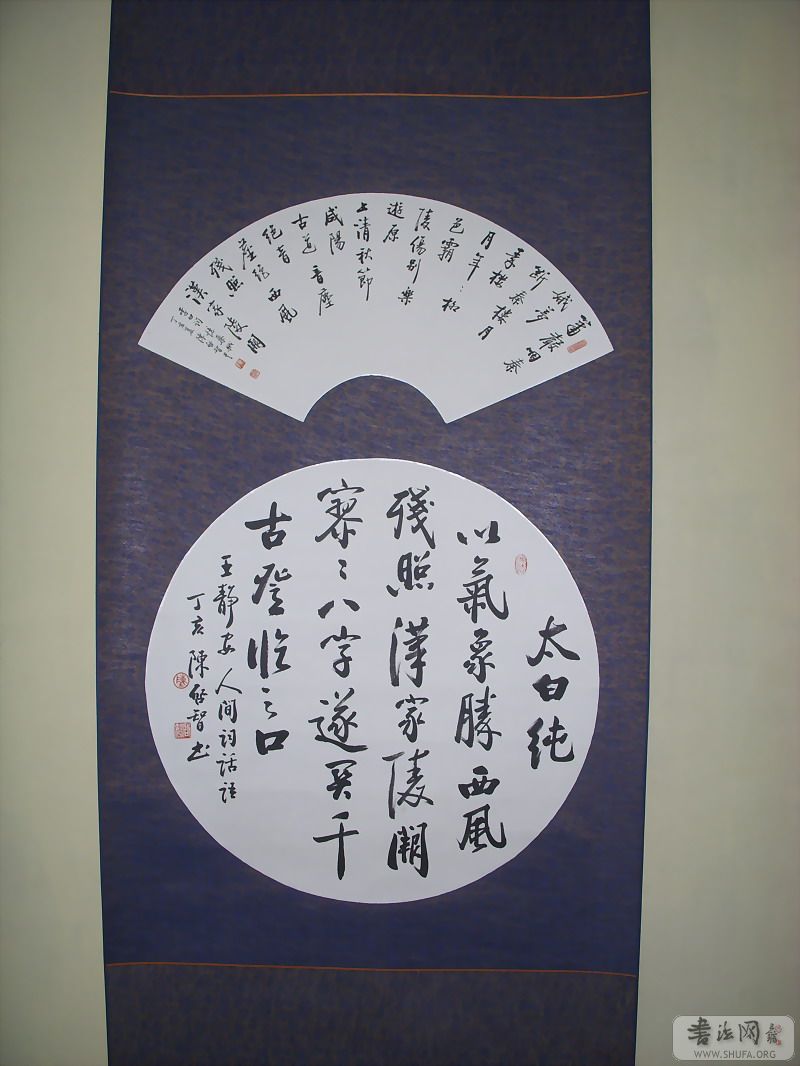 簫聲咽秦
娥夢
斷秦樓月
秦樓
月年〻柳
色霸
陵傷別樂
遊原
上清秋節
咸陽
古道音塵
絕音
塵絕西風
殘照
漢家陵闕
太白純
以氣象勝西風
殘照漢家陵闕
寥〻八字遂關千
古登臨之口
王靜安人間詞話語
丁亥陳啟智書
書法网
WWW.SHUFA.ORG